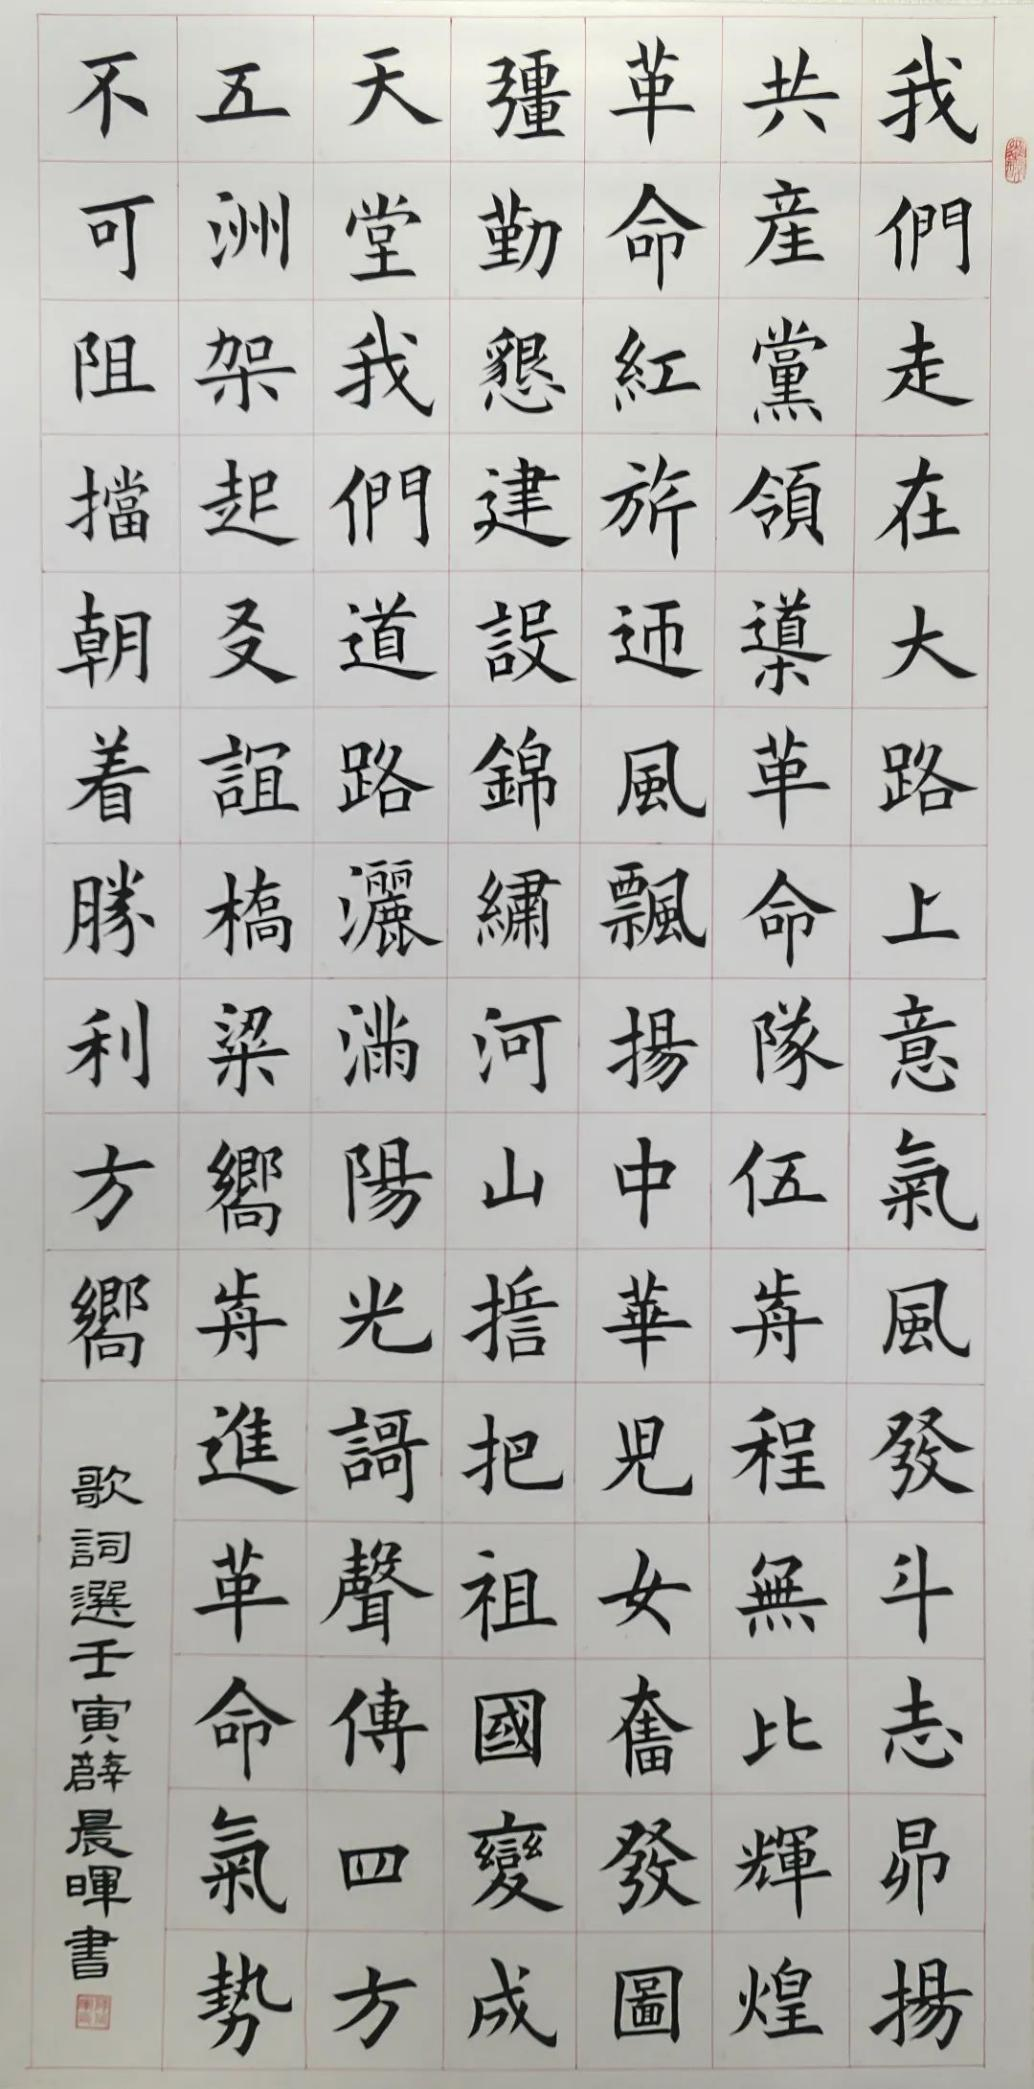 我們走在大路上意氣風發斗志昴揚
共産黨領導革命隊伍歬程無比輝煌
革命紅旂迊風飄揚中華児女奮發圖
彊勤懇建設錦繡河山誓把祖國變成
天堂我們道路灑滿陽光謌聲傳四方
五洲架起友誼橋梁嚮歬進革命氣勢
不可阻擋朝着勝利方嚮
歌詞選壬寅薛晨暉書